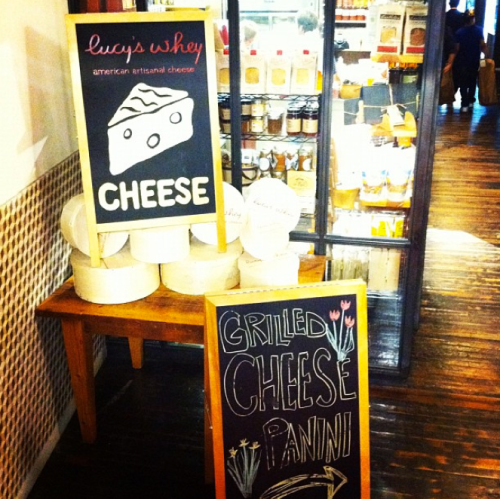 lucy's whey
american artisanal cheese
CHEESE
GRILLED
CHEESE
PANINI